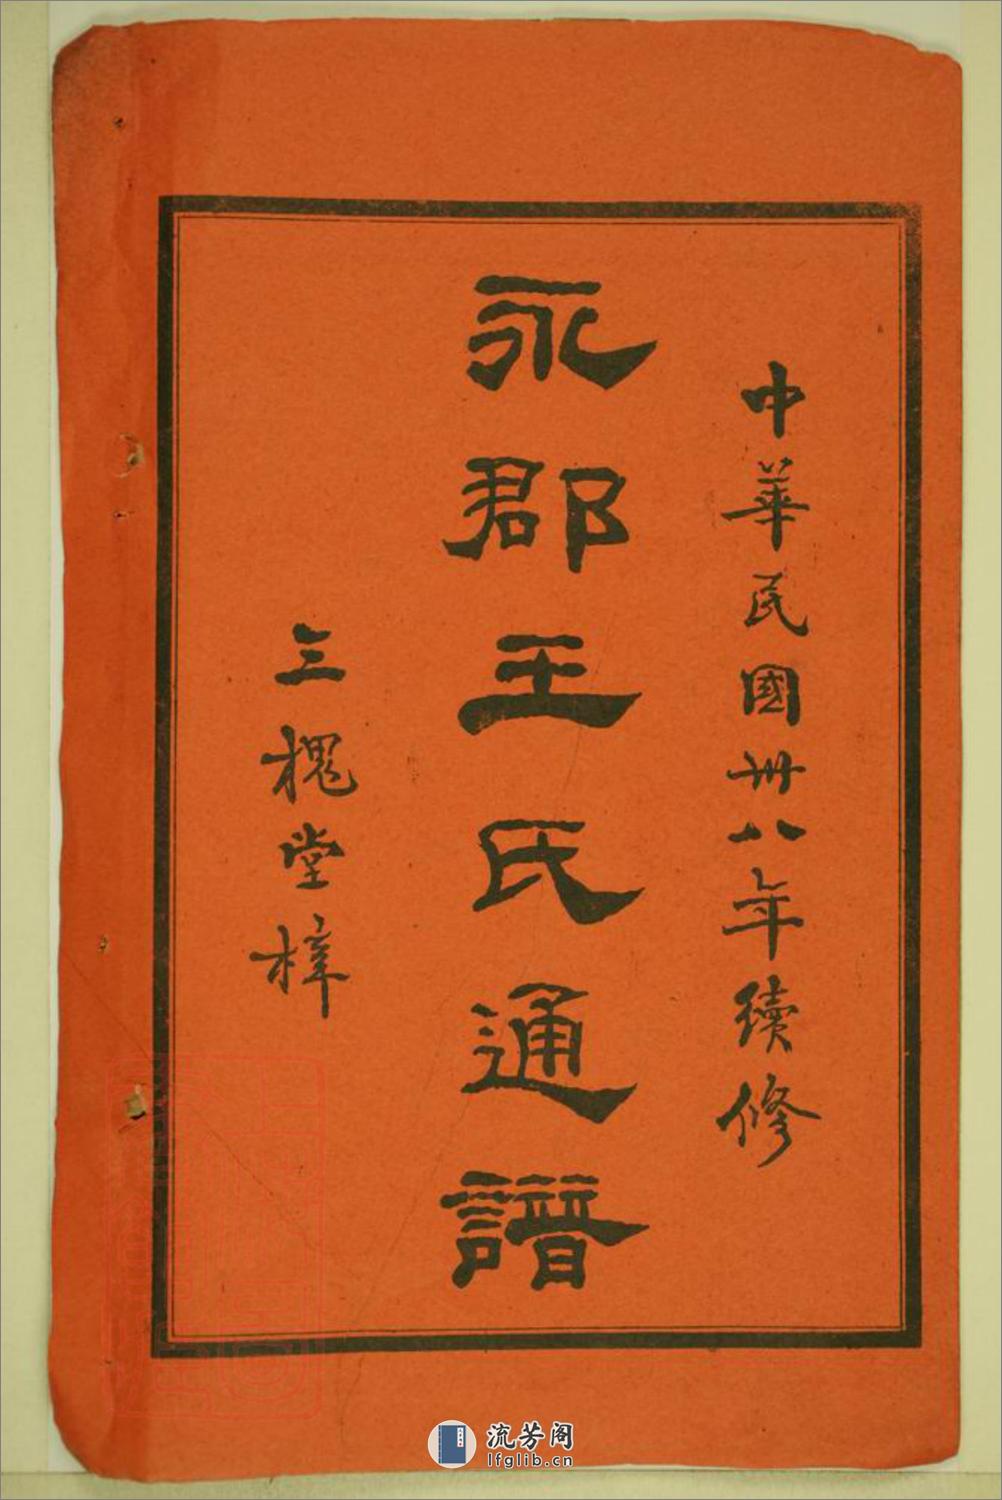 中華民國卅八年續修
永郡王氏通譜
三槐堂梓
流芳阁
lfglib.cn